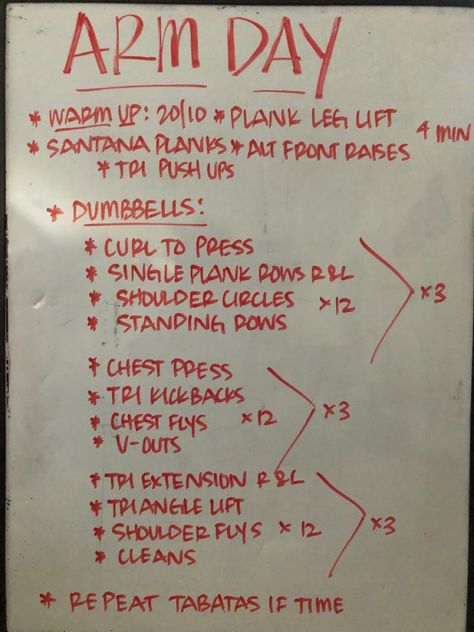 ARM DAY
* WARM UP: 20/10 * PLANK LEG LIFT
* SANTANA PLANKS * ALT FRONT RAISES 4 MIN
* TRI PUSH UPS
* DUMBBELLS:
* CURL TO PRESS
* SINGLE PLANK ROWS R&L
* SHOULDER CIRCLES x12 x3
* STANDING ROWS
* CHEST PRESS
* TRI KICKBACKS
* CHEST FLYS x12 x3
* V-OUTS
* TRI EXTENSION R&L
* TRIANGLE LIFT
* SHOULDER FLYS x12 x3
* CLEANS
* REPEAT TABATAS IF TIME